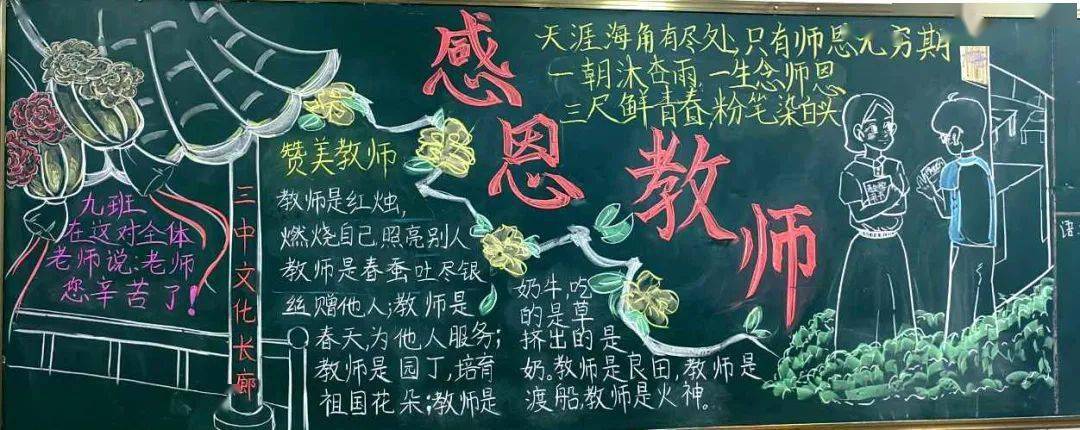 感恩教师
天涯海角有尽处,只有师恩无穷期
一朝沐杏雨,一生念师恩
三尺鲜青春,粉笔染白头
赞美教师
教师是红烛,
燃烧自己,照亮别人
教师是春蚕吐尽银
丝赠他人;教师是
春天,为他人服务;
教师是园丁,培育
祖国花朵;教师是
奶牛,吃
的是草
挤出的是
奶。教师是良田,教师是
渡船,教师是火神。
九班
在这对全体
老师说:老师
您辛苦了!
三中文化长廊